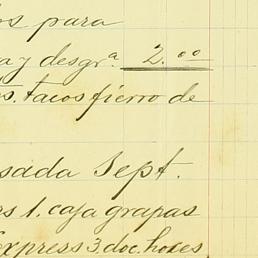 os para
a y desgr.ª 2.00
os. tacos fierro de
sada Sept.
rs 1. caja grapas
Express 3. doc. hoces